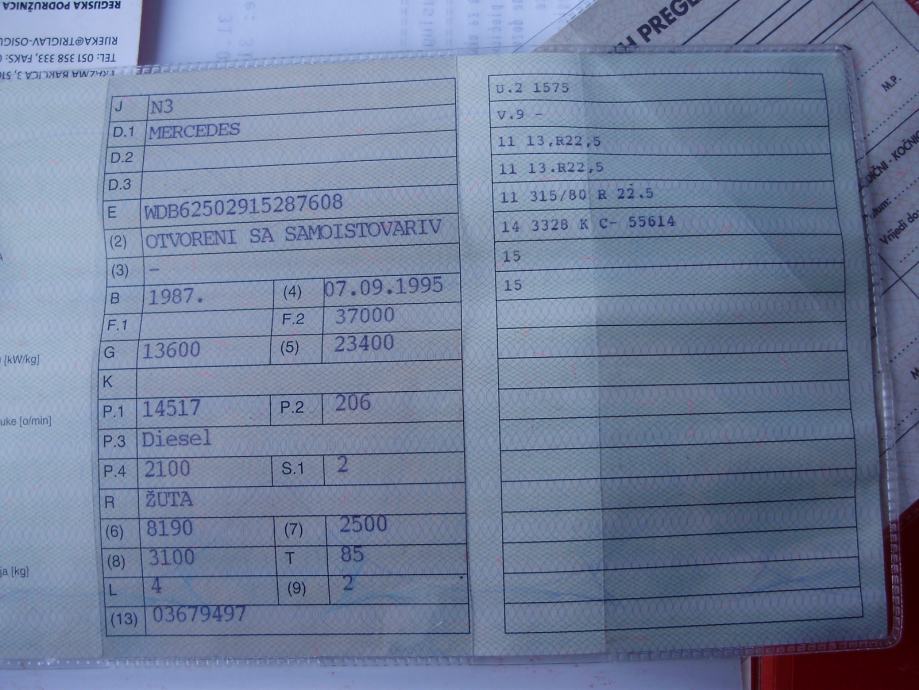 REGIJSKA PODRUŽNICA
RIJEKA@TRIGLAV-OSIGU
TEL: 051 358 333, FAKS:
J N3
D.1 MERCEDES
D.2
D.3
E WDB62502915287608
(2) OTVORENI SA SAMOISTOVARIV
(3) -
B 1987. (4) 07.09.1995
F.1 F.2 37000
G 13600 (5) 23400
K
P.1 14517 P.2 206
P.3 Diesel
P.4 2100 S.1 2
R ŽUTA
(6) 8190 (7) 2500
(8) 3100 T 85
L 4 (9) 2
(13) 03679497
[kW/kg]
[o/min]
[kg]
U.2 1575
V.9 -
11 13,R22,5
11 13.R22,5
11 315/80 R 22.5
14 3328 K C- 55614
15
15
M.P.
Vrijedi do